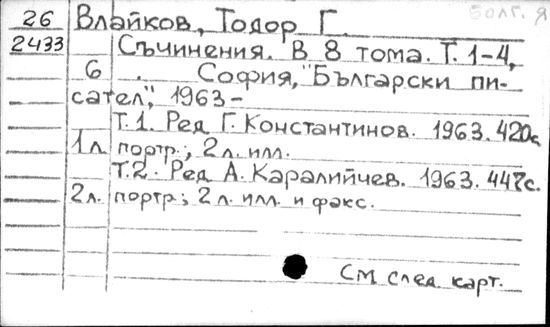 болг. я
26 Влайков, Тодор Г.
2433 Съчинения. В 8 тома. Т. 1-4,
6 . София, "Български пи-
сател", 1963-
Т.1. Ред Г. Константинов. 1963. 420с,
1л портр.; 2 л. илл.
Т.2. Ред А. Каралийчев. 1963. 447с.
2л. портр.; 2 л. илл. и факс.
См след карт.